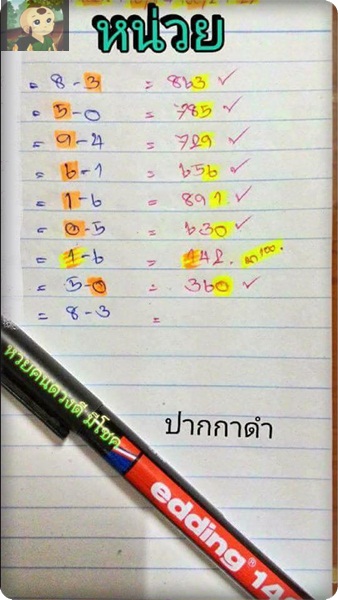 หน่วย
= 8-3 = 863 ✓
= 5-0 = 785 ✓
= 9-4 = 729 ✓
= 6-1 = 656 ✓
= 1-6 = 891 ✓
= 0-5 = 630 ✓
= 1-6 = 142.
= 5-0 = 360 ✓
= 8-3 =
หวยคนดวงดี มีโชค
ปากกาดำ
edding® 14